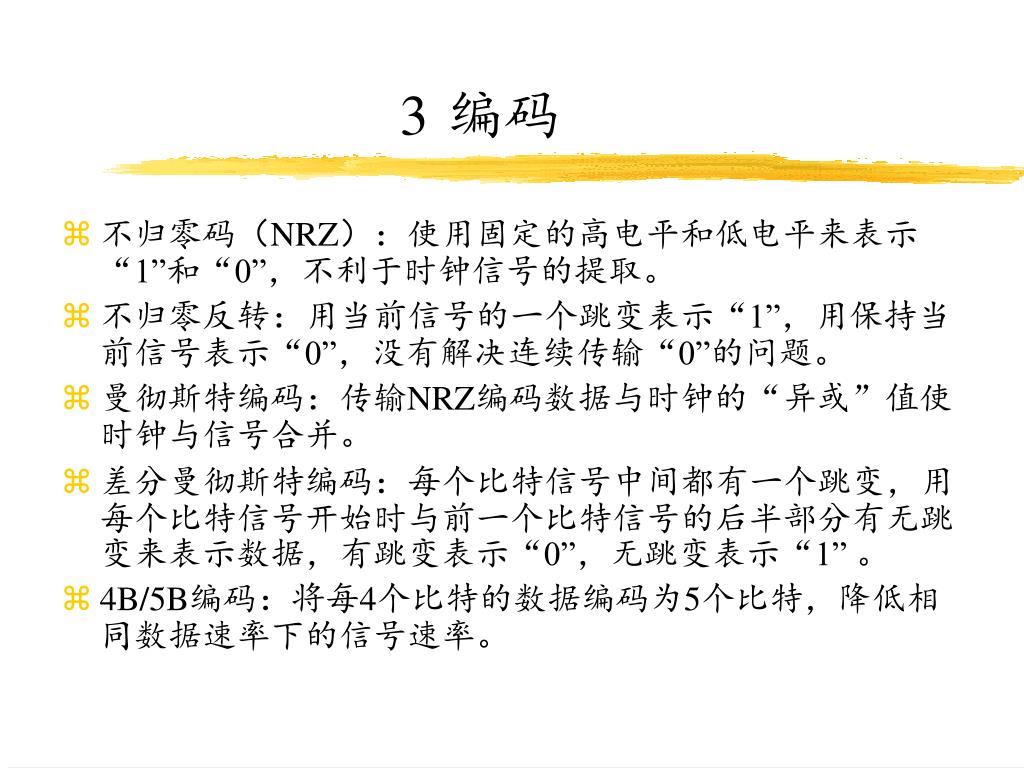 3 编码
不归零码（NRZ）：使用固定的高电平和低电平来表示
“1”和“0”，不利于时钟信号的提取。
不归零反转：用当前信号的一个跳变表示“1”，用保持当
前信号表示“0”，没有解决连续传输“0”的问题。
曼彻斯特编码：传输NRZ编码数据与时钟的“异或”值使
时钟与信号合并。
差分曼彻斯特编码：每个比特信号中间都有一个跳变，用
每个比特信号开始时与前一个比特信号的后半部分有无跳
变来表示数据，有跳变表示“0”，无跳变表示“1” 。
4B/5B编码：将每4个比特的数据编码为5个比特，降低相
同数据速率下的信号速率。